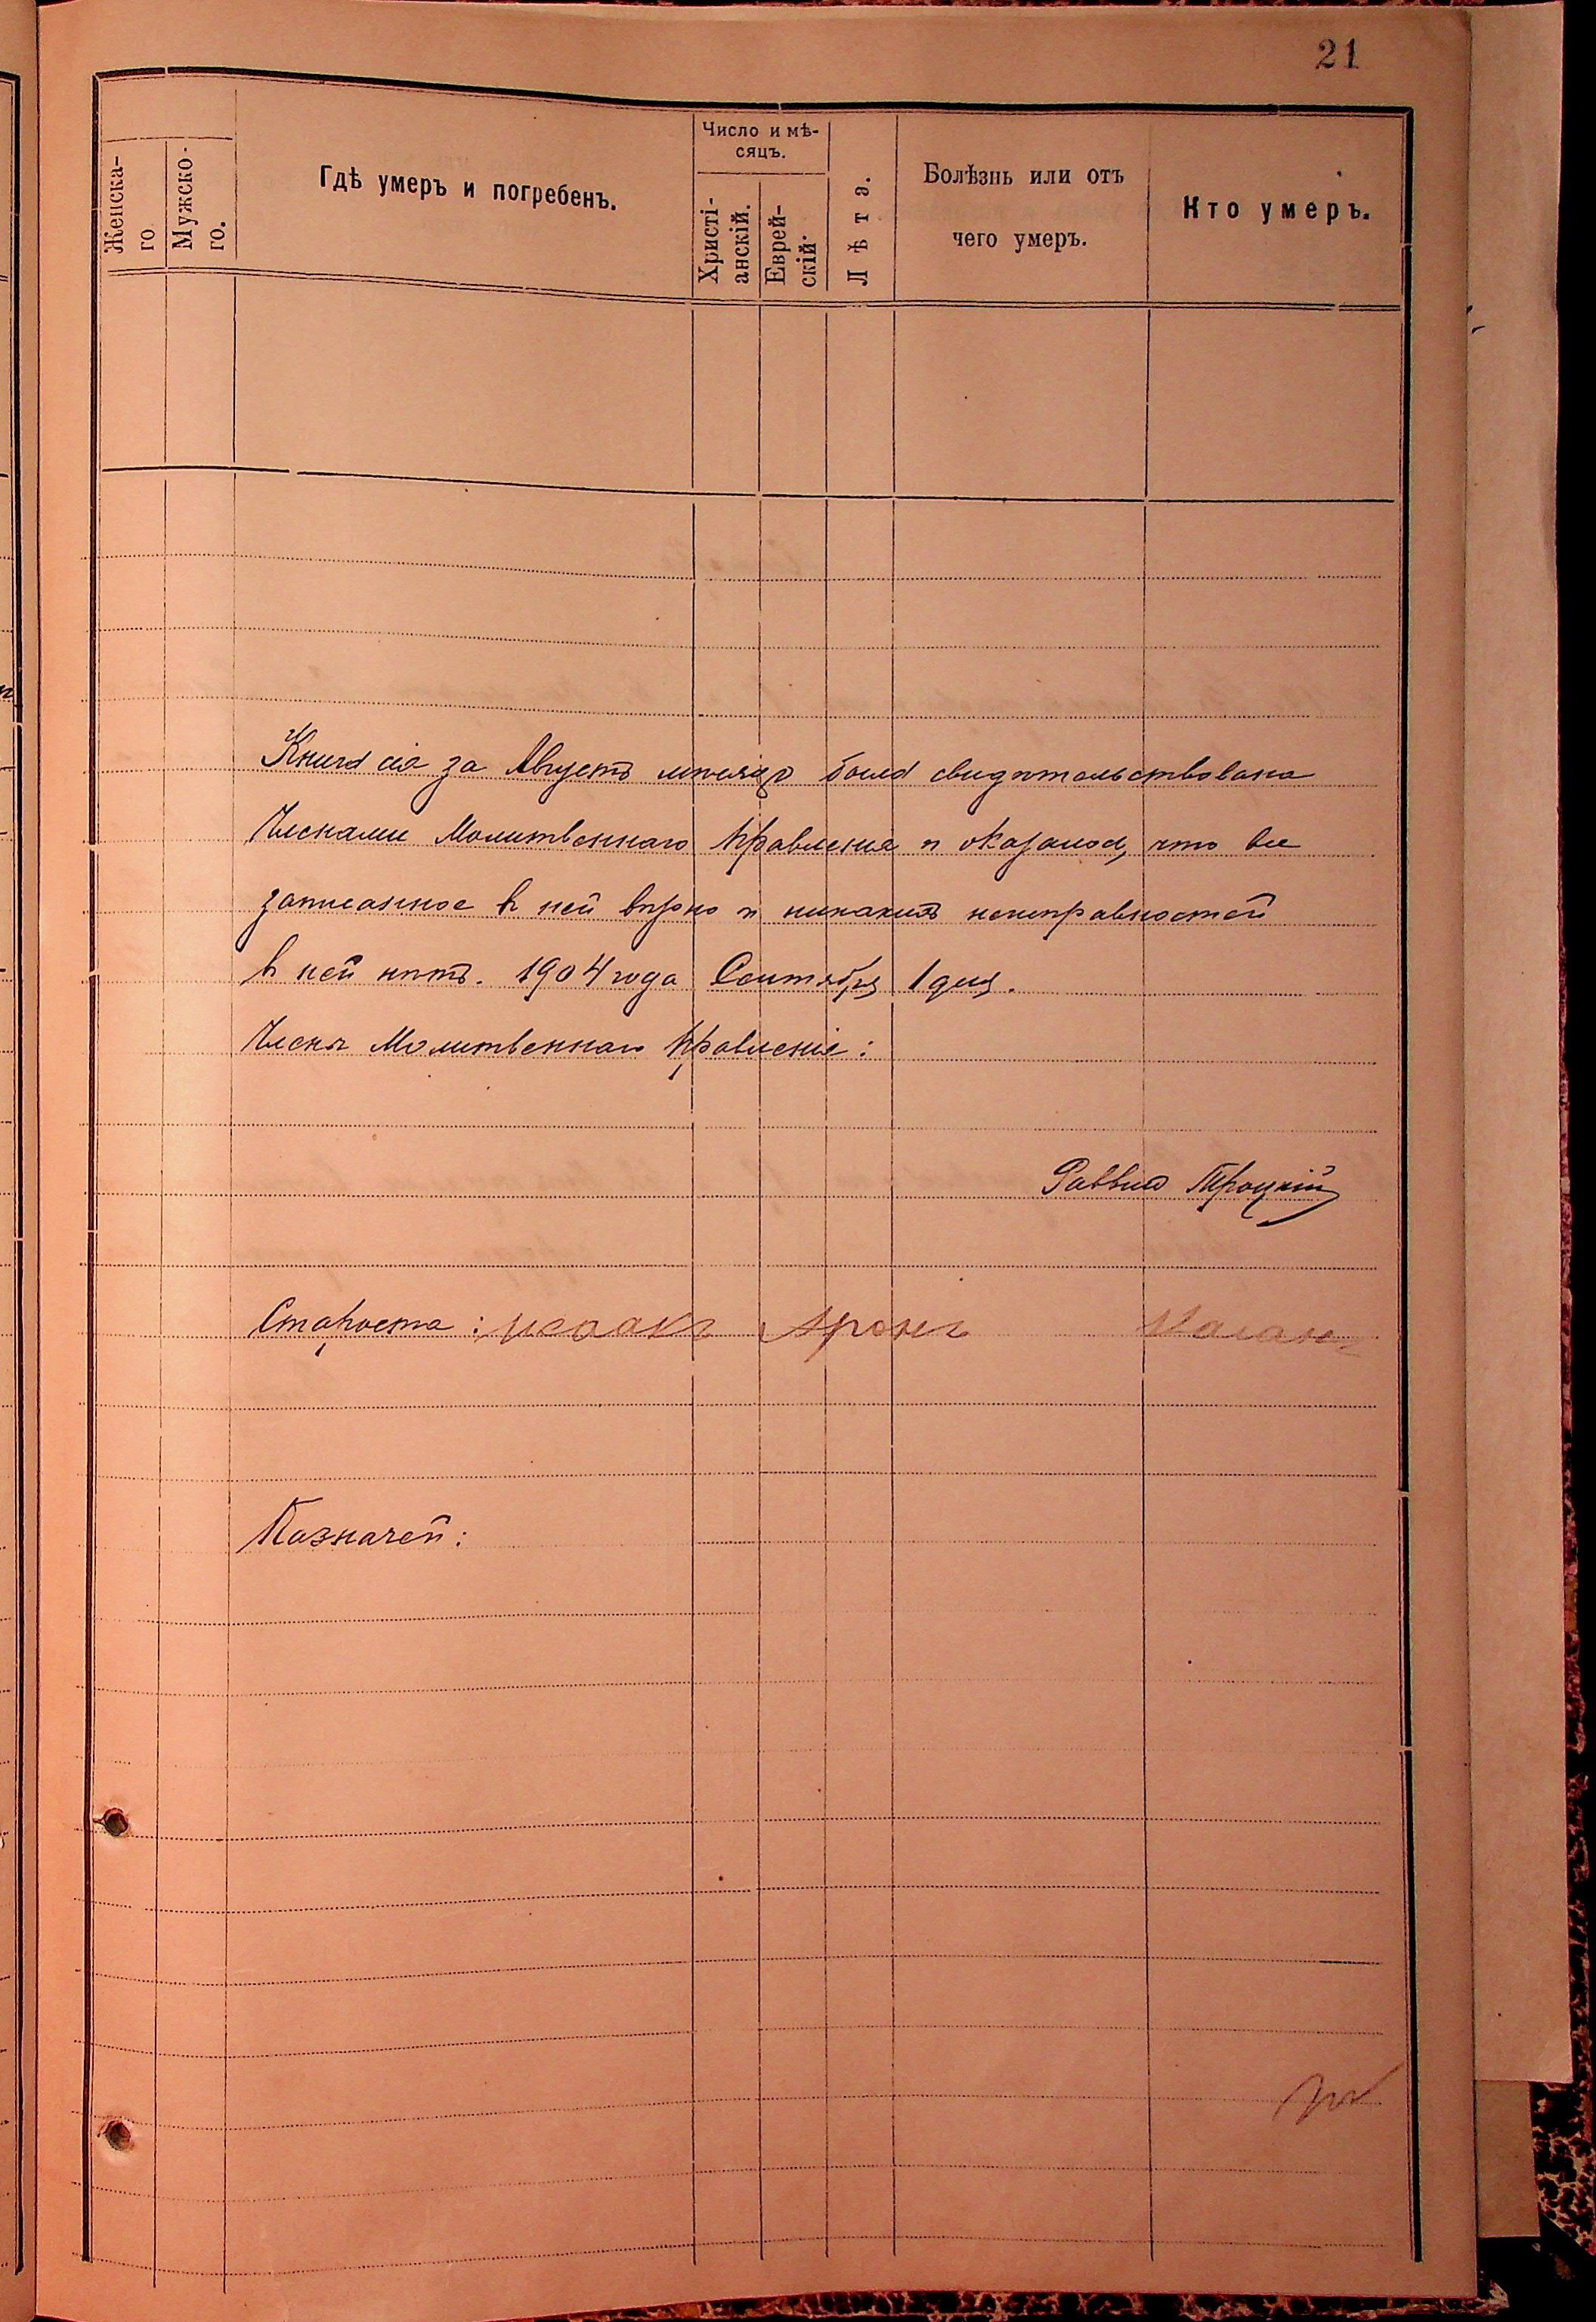 21
Женска-
го
Мужско-
го.
Гдѣ умеръ и погребенъ.
Число и мѣ-
сяцъ.
Христі-
анскій.
Еврей-
скій.
Лѣта.
Болѣзнь или отъ
чего умеръ.
Кто умеръ.
Книга сія за Августъ мѣсяцъ была свидѣтельствована
Членами Молитвеннаго Правленія и оказалось, что все
записанное в ней вѣрно и никакихъ неисправностей
в ней нѣтъ. 1904 года Сентября 1 дня.
Члены Молитвеннаго Правленія:
Раввинъ Троцкій
Староста: Исаакъ Аронъ Каганъ
Казначей: